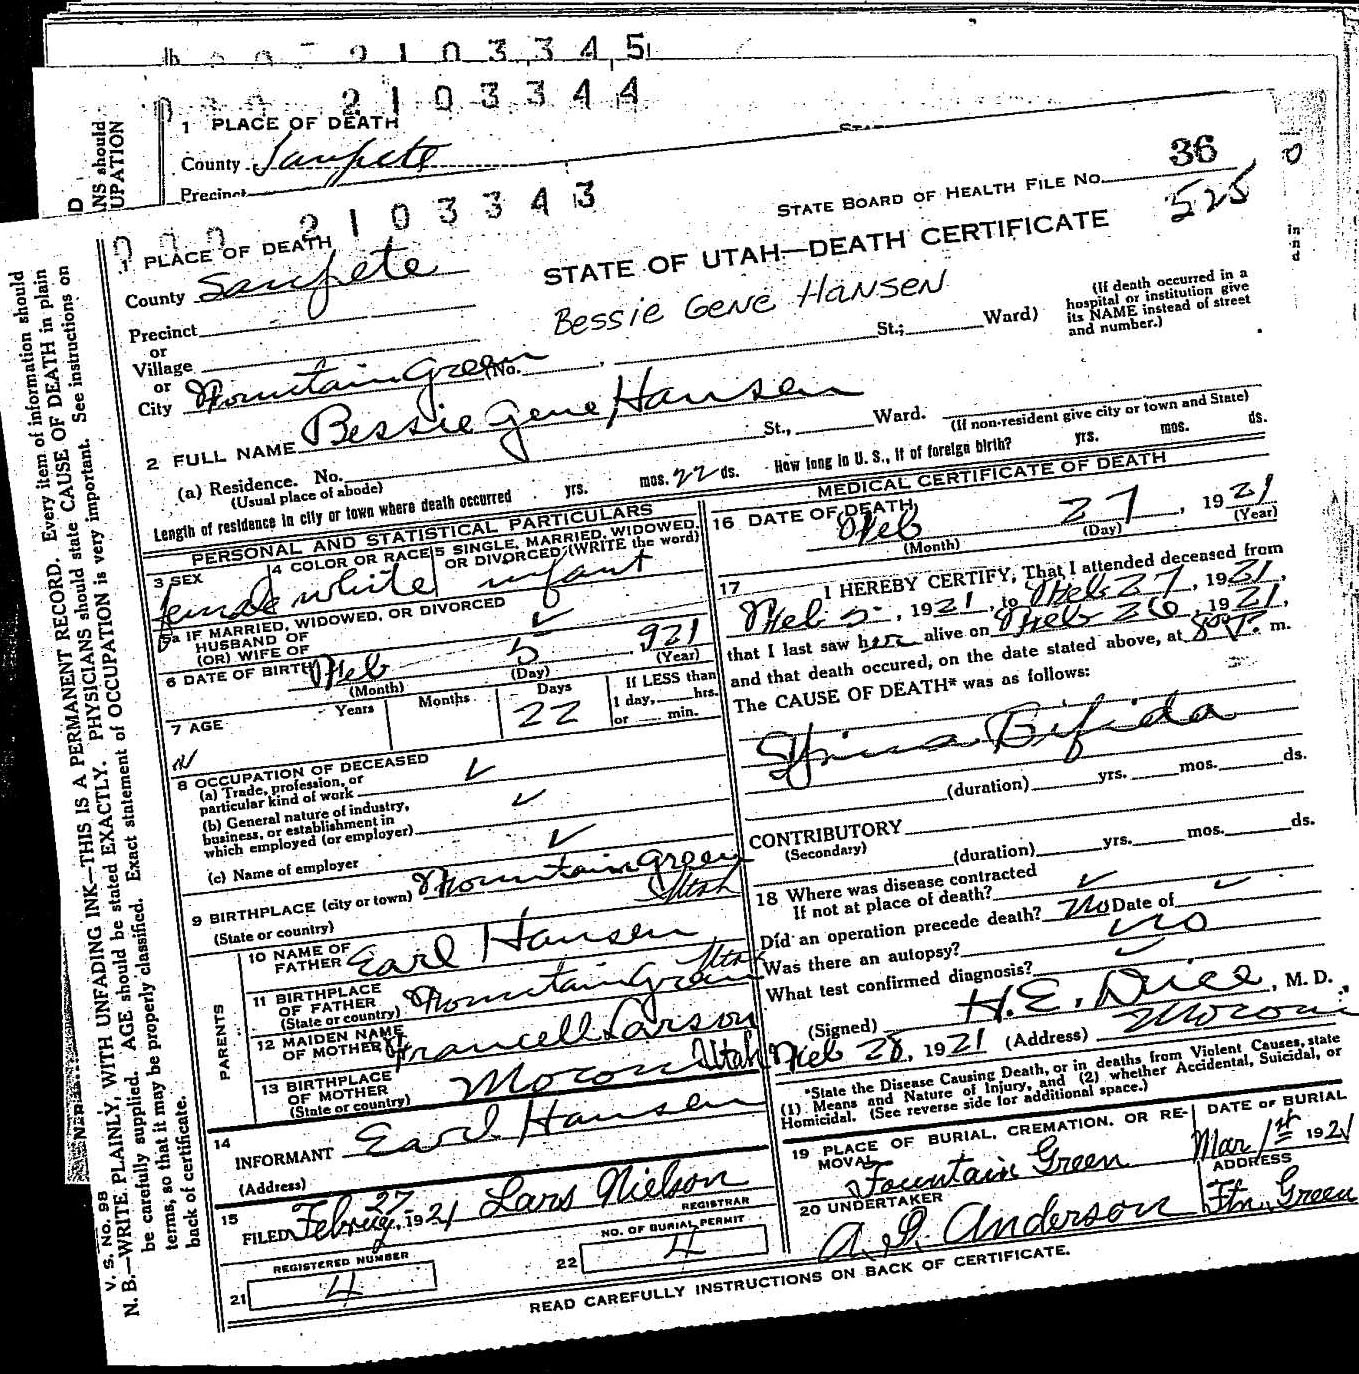 2 1 0 3 3 4 5
2 1 0 3 3 4 4
1 PLACE OF DEATH
County Sanpete
Precinct
2 1 0 3 3 4 3
36
STATE BOARD OF HEALTH FILE NO.
525
1 PLACE OF DEATH
STATE OF UTAH—DEATH CERTIFICATE
County Sanpete
Bessie Gene Hansen
Precinct
or
Village
or
City Mountain Green (No. St.; Ward)
(If death occurred in a
hospital or institution give
its NAME instead of street
and number.)
2 FULL NAME Bessie Gene Hansen
(a) Residence. No. St., Ward.
(Usual place of abode)
(If non-resident give city or town and State)
Length of residence in city or town where death occurred yrs. mos. 22 ds. How long in U. S., if of foreign birth? yrs. mos. ds.
PERSONAL AND STATISTICAL PARTICULARS
3 SEX
female
4 COLOR OR RACE
white
5 SINGLE, MARRIED, WIDOWED,
OR DIVORCED (WRITE the word)
infant
5a IF MARRIED, WIDOWED, OR DIVORCED
HUSBAND OF
(OR) WIFE OF
6 DATE OF BIRTH Feb 5 921
(Month) (Day) (Year)
7 AGE Years Months Days
22
If LESS than
1 day, hrs.
or min.
8 OCCUPATION OF DECEASED
(a) Trade, profession, or
particular kind of work
(b) General nature of industry,
business, or establishment in
which employed (or employer)
(c) Name of employer
9 BIRTHPLACE (city or town) Mountain Green
(State or country) Utah
PARENTS
10 NAME OF
FATHER Earl Hansen
11 BIRTHPLACE
OF FATHER
(State or country) Mountain Green Utah
12 MAIDEN NAME
OF MOTHER Francell Larson
13 BIRTHPLACE
OF MOTHER
(State or country) Moroni Utah
14
INFORMANT Earl Hansen
(Address)
15
FILED Februay 27, 1921 Lars Nielson
REGISTRAR
REGISTERED NUMBER
21 4
NO. OF BURIAL PERMIT
22 4
MEDICAL CERTIFICATE OF DEATH
16 DATE OF DEATH
Feb 27, 1921
(Month) (Day) (Year)
17 I HEREBY CERTIFY, That I attended deceased from
Feb 5, 1921, to Feb 27, 1921,
that I last saw her alive on Feb 26, 1921,
and that death occured, on the date stated above, at m.
The CAUSE OF DEATH* was as follows:
Spina Bifida
(duration) yrs. mos. ds.
CONTRIBUTORY
(Secondary)
(duration) yrs. mos. ds.
18 Where was disease contracted
If not at place of death?
Did an operation precede death? no Date of
Was there an autopsy? no
What test confirmed diagnosis?
(Signed) H. E. Dice, M. D.
Feb 28, 1921 (Address) Moroni
*State the Disease Causing Death, or in deaths from Violent Causes, state
(1) Means and Nature of Injury, and (2) whether Accidental, Suicidal, or
Homicidal. (See reverse side for additional space.)
19 PLACE OF BURIAL, CREMATION, OR RE-
MOVAL
Fountain Green
DATE OF BURIAL
Mar 1st 1921
20 UNDERTAKER
A. I. Anderson
ADDRESS
Ftn. Green
READ CAREFULLY INSTRUCTIONS ON BACK OF CERTIFICATE.
V. S. No. 98
N. B.—WRITE PLAINLY, WITH UNFADING INK—THIS IS A PERMANENT RECORD. Every item of information should
be carefully supplied. AGE should be stated EXACTLY. PHYSICIANS should state CAUSE OF DEATH in plain
terms, so that it may be properly classified. Exact statement of OCCUPATION is very important. See instructions on
back of certificate.